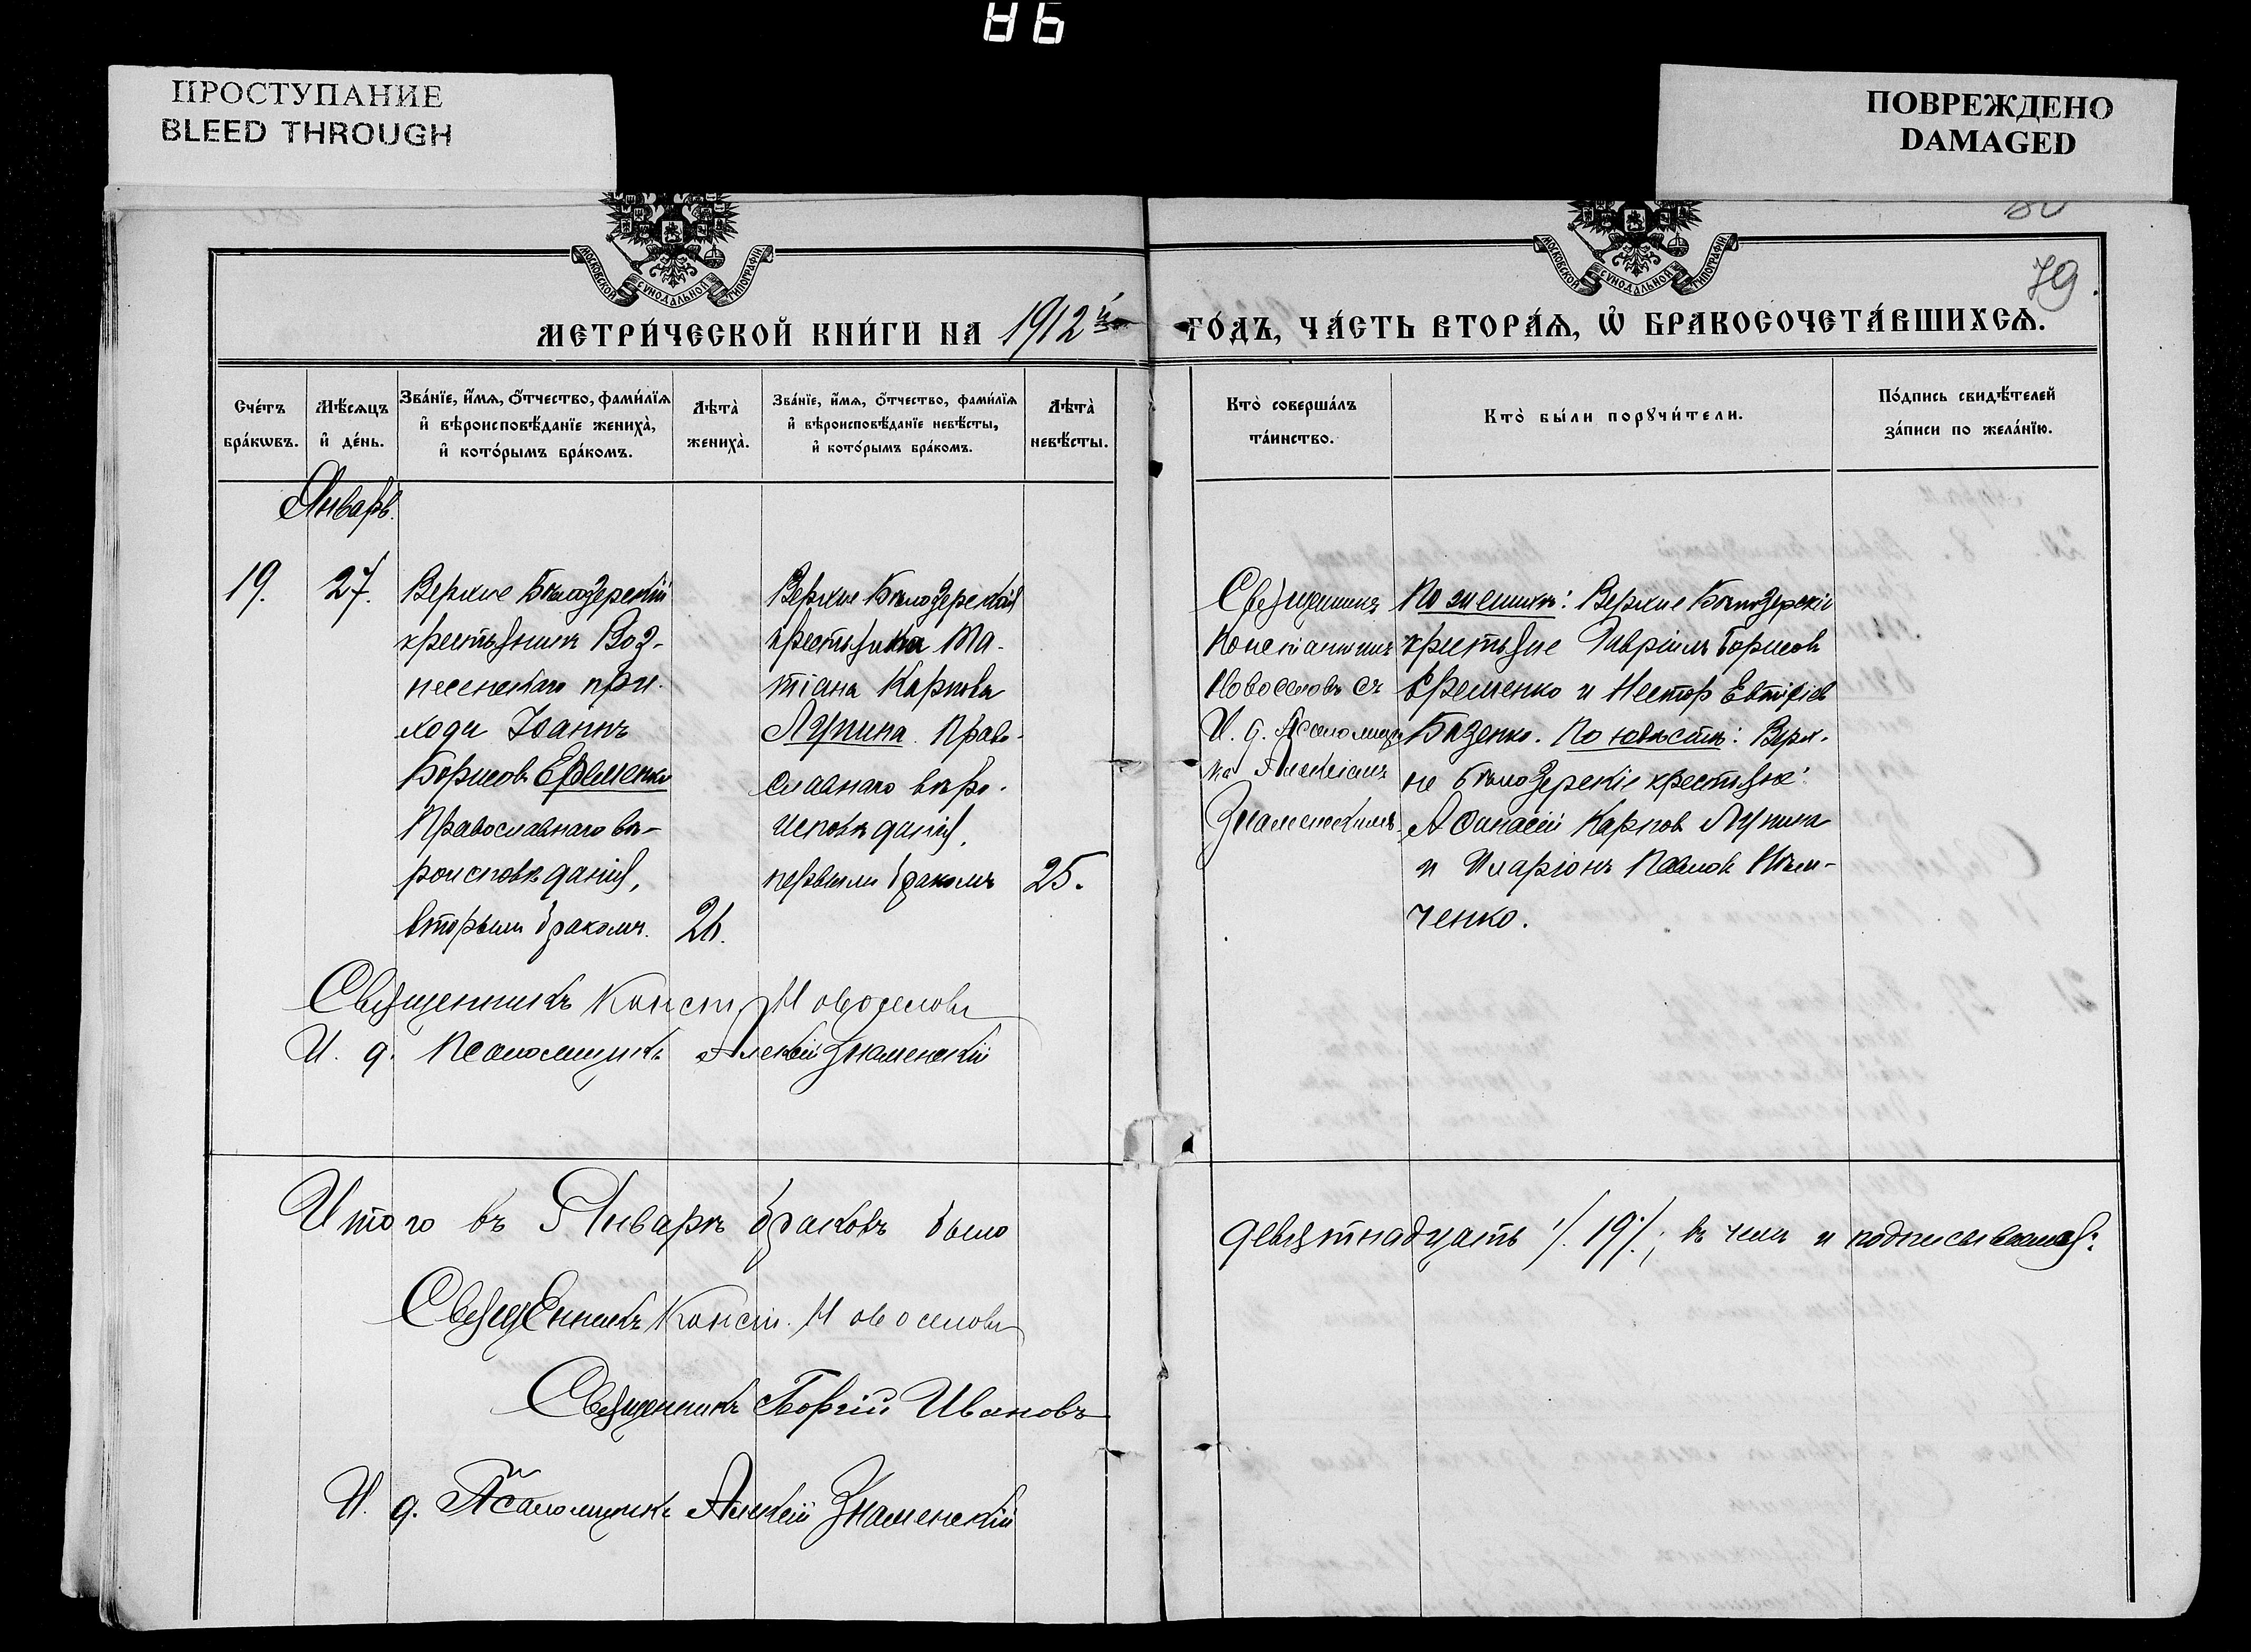 ПРОСТУПАНИЕ
BLEED THROUGH
ПОВРЕЖДЕНО
DAMAGED
МОСКОВСКОЙ СУНОДАЛЬНОЙ ТИПОГРАФІИ
МОСКОВСКОЙ СУНОДАЛЬНОЙ ТИПОГРАФІИ
79.
МЕТРИ́ЧЕСКОЙ КНИ́ГИ НА 1912й
ГО́ДЪ, ЧА́СТЬ ВТОРА́Ѧ, Ѡ҆ БРАКОСОЧЕТА́ВШИХСѦ.
Сче́тъ
бра́кѡвъ.
Мѣ́сѧцъ
и҆ де́нь.
Зва́нїе, и҆́мѧ, о҆́тчество, фами́лїѧ
и҆ вѣроисповѣ́данїе жениха̀,
и҆ кото́рымъ бра́комъ.
Лѣта̀
жениха̀.
Зва́нїе, и҆́мѧ, о҆́тчество, фами́лїѧ
и҆ вѣроисповѣ́данїе невѣ́сты,
и҆ кото́рымъ бра́комъ.
Лѣта̀
невѣ́сты.
Кто̀ соверша́лъ
та́инство.
Кто̀ бы́ли порꙋчи́тели.
По́дпись свидѣ́телей
за́писи по жела́нїю.
Январь.
19.
27.
Верхне Бѣлозерскій
крестьянинъ Воз-
несенскаго при-
хода Іоаннъ
Борисовъ Ефеменко
Православнаго вѣ-
роисповѣданія,
вторымъ бракомъ.
26.
Верхне Бѣлозерская
крестьянка Та-
тіана Карпова
Лупина. Право-
славнаго вѣро-
исповѣданія,
первымъ бракомъ
25.
Священникъ
Константинъ
Новоселовъ съ
И. д. Псаломщи-
ка Алексіемъ
Знаменскимъ.
По женихѣ: Верхне Бѣлозерскіе
крестьяне Гавріилъ Борисовъ
Ефеменко и Несторъ Евтихіевъ
Базенко. По невѣстѣ: Верх-
не Бѣлозерскіе крестьяне:
Афанасій Карповъ Лупина
и Иларіонъ Павловъ Нѣм-
ченко.
Священникъ Конст. Новоселовъ
И. д. Псаломщика Алексій Знаменскій
Итого въ Январѣ браковъ было
девятнадцать /.19./; въ чемъ и подписываемся:
Священникъ Конст. Новоселовъ
Священникъ Георгій Ивановъ
И. д. Псаломщика Алексій Знаменскій